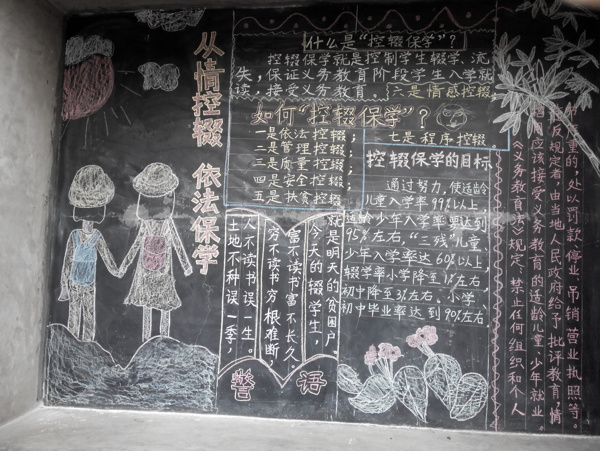 从情控辍 依法保学
什么是“控辍保学”？
控辍保学就是控制学生辍学、流
失，保证义务教育阶段学生入学就
读，接受义务教育。
六是情感控辍
如何“控辍保学”？
一是依法控辍；
二是管理控辍；
三是质量控辍；
四是安全控辍；
五是扶贫控辍；
七是程序控辍。
控辍保学的目标
通过努力，使适龄
儿童入学率99%以上，
适龄少年入学率要达到
95%左右，“三残”儿童、
少年入学率达60%以上，
辍学率小学降至1%左右，
初中降至3%左右。小学
初中毕业率达到90%左右。
就是明天的贫困户
今天的辍学生，
富不读书富不长久。
穷不读书穷根难断，
人不读书误一生。
土地不种误一季，
警语
《义务教育法》规定：禁止任何组织和个人
应该接受义务教育的适龄儿童、少年就业。
反规定者，由当地人民政府给予批评教育，情
重的，处以罚款、停业、吊销营业执照等。